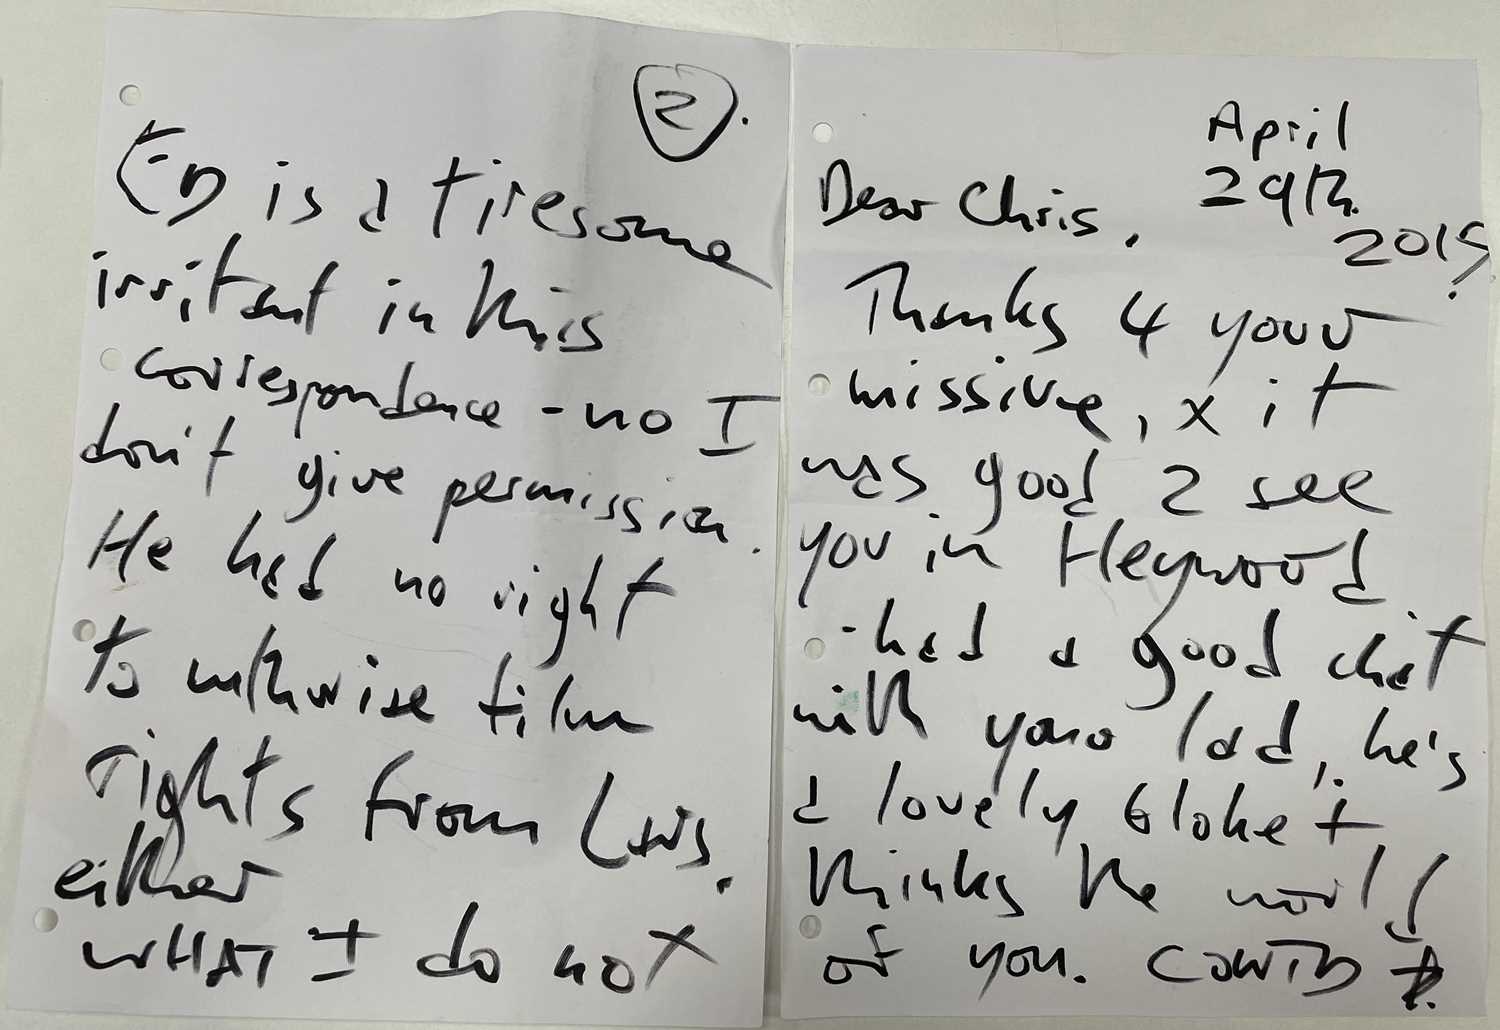 April
29th
2015.
Dear Chris,
Thanks 4 your
missive, x it
was good 2 see
you in Heywood
- had a good chat
with your lad, he's
a lovely bloke +
thinks the world
of you. CONTD
2.
ED is a tiresome
irritant in this
correspondence - no I
don't give permission.
He had no right
to authorise film
rights from
either
WHAT I do not